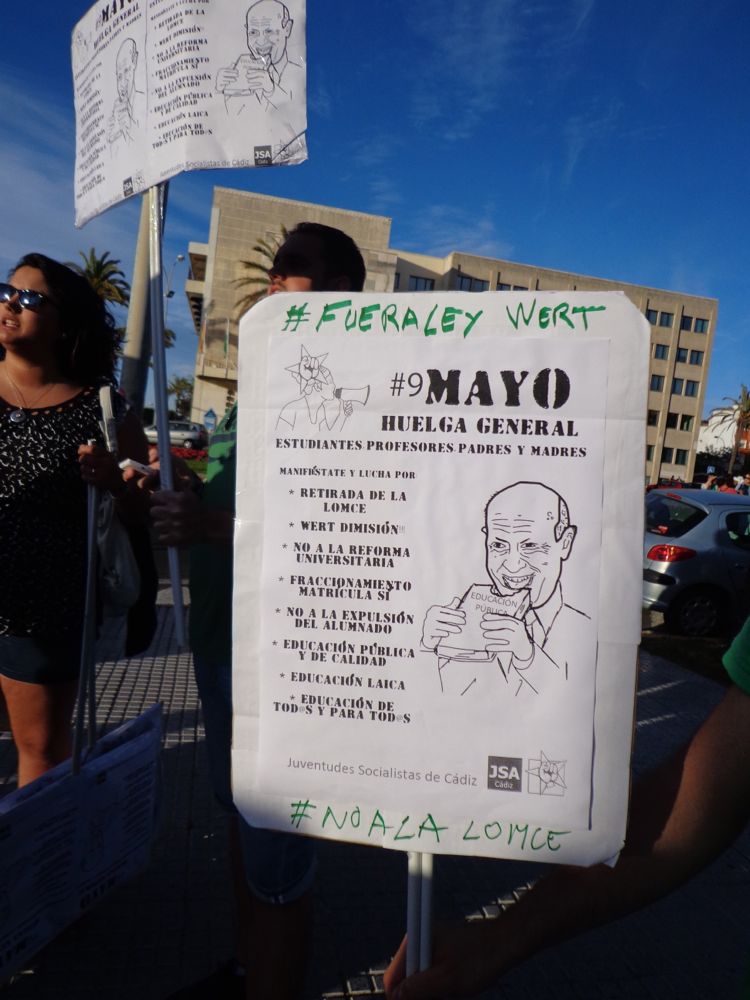 MAYO
HUELGA GENERAL
* RETIRADA DE LA
LOMCE
* WERT DIMISIÓN!!!
* NO A LA REFORMA
UNIVERSITARIA
* FRACCIONAMIENTO
MATRÍCULA SÍ
* NO A LA EXPULSIÓN
DEL ALUMNADO
* EDUCACIÓN PÚBLICA
Y DE CALIDAD
* EDUCACIÓN LAICA
* EDUCACIÓN DE
TOD@S Y PARA TOD@S
Juventudes Socialistas de Cádiz
JSA
Cádiz
#FUERALEY WERT
#9MAYO
HUELGA GENERAL
ESTUDIANTES-PROFESORES-PADRES Y MADRES
MANIFIÉSTATE Y LUCHA POR
* RETIRADA DE LA
LOMCE
* WERT DIMISIÓN!!!
* NO A LA REFORMA
UNIVERSITARIA
* FRACCIONAMIENTO
MATRÍCULA SÍ
* NO A LA EXPULSIÓN
DEL ALUMNADO
* EDUCACIÓN PÚBLICA
Y DE CALIDAD
* EDUCACIÓN LAICA
* EDUCACIÓN DE
TOD@S Y PARA TOD@S
EDUCACIÓN
PÚBLICA
Juventudes Socialistas de Cádiz
JSA
Cádiz
#NO A LA LOMCE